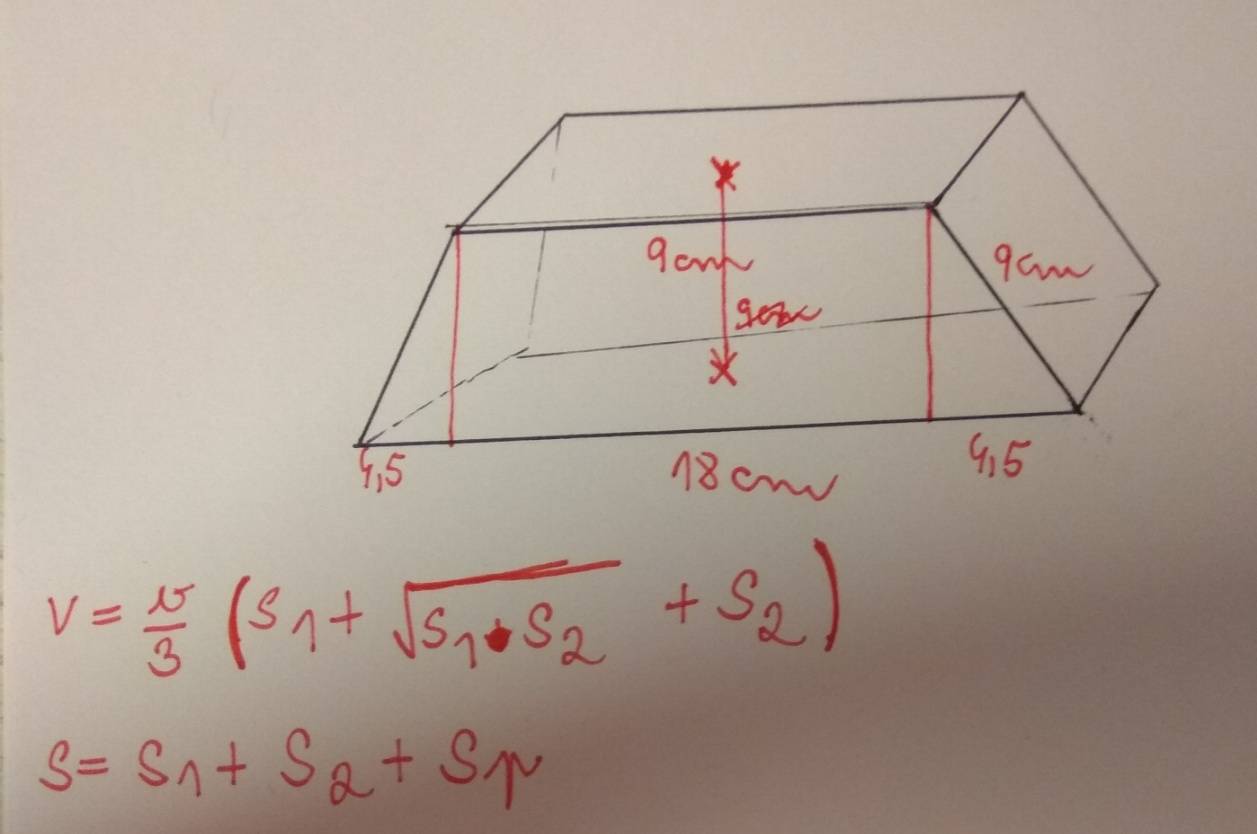 9cm
9cm
4,5
18cm
4,5
V = v/3 (S1 + √S1·S2 + S2)
S = S1 + S2 + Sp